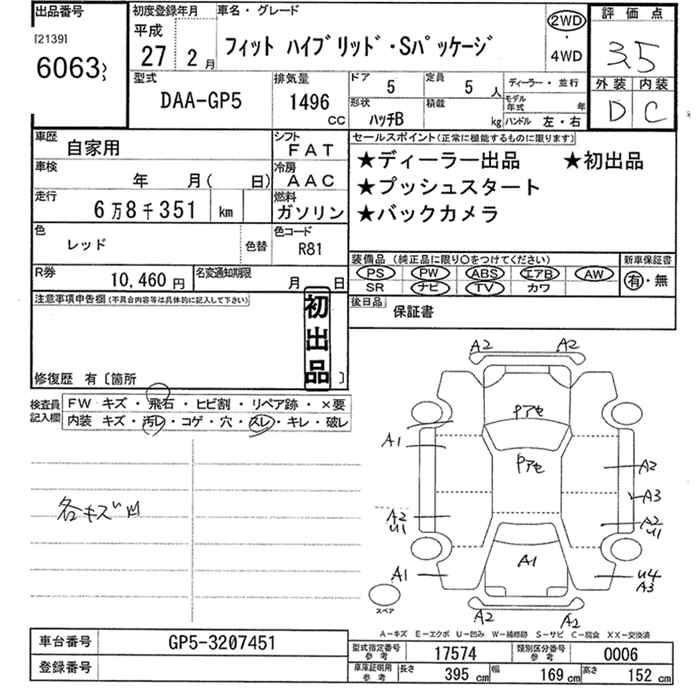 出品番号 初度登録年月 車名・グレード 評価点
[2139] 平成 2WD
6063 27 2月 フィット ハイブリッド・Sパッケージ ・ 3.5
4WD
型式 排気量 ドア 5 定員 5人 ディーラー・並行 外装 内装
DAA-GP5 1496 CC 形状 ハッチB 積載 kg モデル年式 年 D C
ハンドル 左・右
車歴 自家用 シフト FAT セールスポイント(正常に機能するものに限ります)
★ディーラー出品 ★初出品
車検 年 月( 日) 冷房 AAC ★プッシュスタート
走行 6万8千351 km 燃料 ガソリン ★バックカメラ
色 レッド 色替 色コード R81 装備品(純正品に限り○をつけてください) 新車保証書
PS PW ABS エアB AW 有・無
R券 10,460円 名変通知期限 月 日 SR ナビ TV カワ
注意事項申告欄(不具合内容等は具体的に記入して下さい) 初出品 後日品 保証書
修復歴 有〔箇所 〕
検査員記入欄 FW キズ・飛石・ヒビ割・リペア跡・×要
内装 キズ・汚レ・コゲ・穴・スレ・キレ・破レ
A2 A2
Pアセ
A1
Pアセ A2
A3
各キズ凹
A2 U1 A2 U1
A1
A1 U4 A3
スペア
A2 A2
A-キズ E-エクボ U-凹み W-補修跡 S-サビ C-腐食 XX-交換済
車台番号 GP5-3207451 型式指定番号参考 17574 類別区分番号参考 0006
登録番号 車庫証明用参考 長さ 395cm 幅 169cm 高さ 152cm